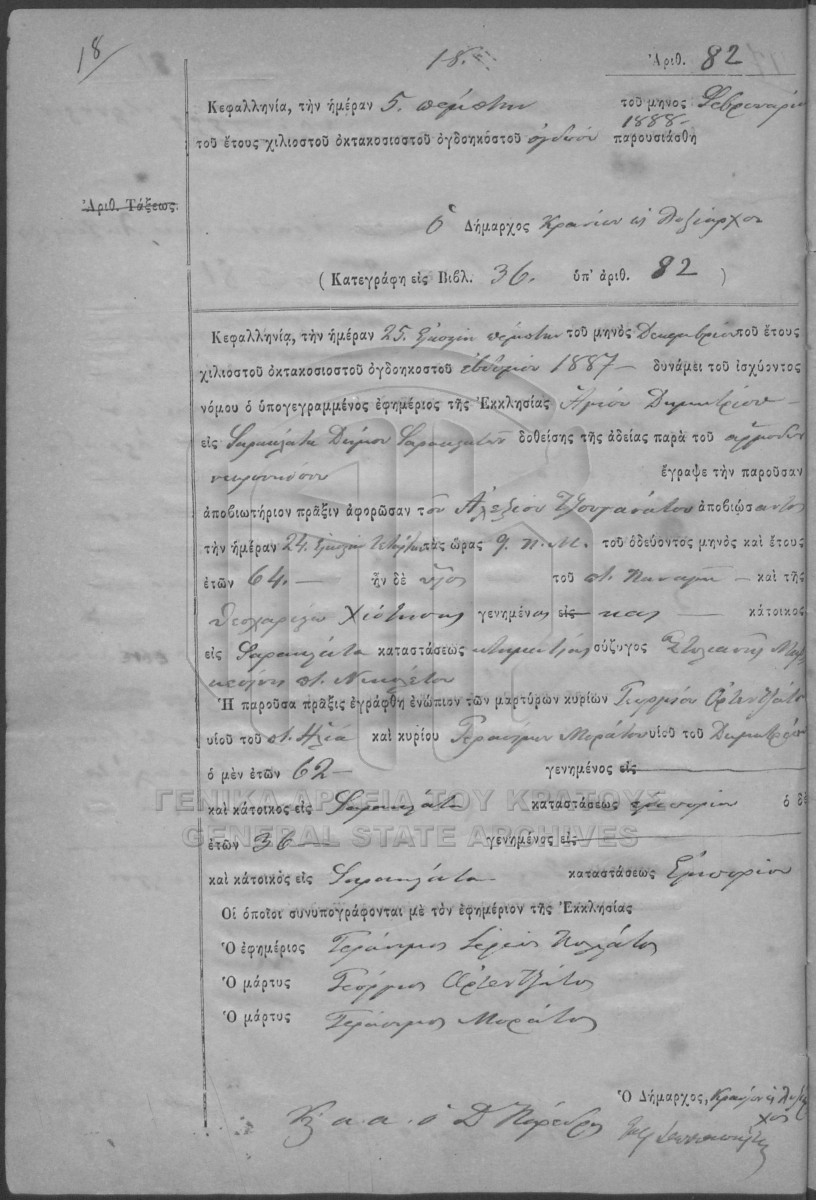 18/ 18. Ἀριθ. 82
Κεφαλληνία, τὴν ἡμέραν 5. πέμπτην τοῦ μηνος Φεβρουαρίου
1888
τοῦ ἔτους χιλιοστοῦ ὀκτακοσιοστοῦ ὀγδοηκοστοῦ ὀγδόου παρουσιάσθη
Ἀριθ. Τάξεως.
ὁ Δήμαρχος Κρανίων ὡς Ληξίαρχος
( Κατεγράφη εἰς Βιβλ. 36. ὑπ' ἀριθ. 82 )
Κεφαλληνία, τὴν ἡμέραν 25. εἰκοστὴν πέμπτην τοῦ μηνὸς Δεκεμβρίου τοῦ ἔτους
χιλιοστοῦ ὀκτακοσιοστοῦ ὀγδοηκοστοῦ ἑβδόμου 1887 — δυνάμει τοῦ ἰσχύοντος
νόμου ὁ ὑπογεγραμμένος ἐφημέριος τῆς Ἐκκλησίας Ἁγίου Δημητρίου —
εἰς Φαρακλάτα Δήμου δοθείσης τῆς ἀδείας παρὰ τοῦ ἁρμοδίου
ἔγραψε τὴν παροῦσαν
ἀποβιωτήριον πρᾶξιν ἀφορῶσαν τὸν Ἀλέξιον Τζουγανάτον ἀποβιώσαντος
τὴν ἡμέραν 24. εἰκοστὴν τετάρτην τὰς ὥρας 9. π. μ. τοῦ ὁδεύοντος μηνὸς καὶ ἔτους
ἐτῶν 64. — ἦν δὲ υἱὸς τοῦ ποτ. Παναγῆ — καὶ τῆς
γενημένος εἰς κάτοικος
εἰς Φαρακλάτα καταστάσεως κτηματίας σύζυγος Στυλιανῆς
ποτ. Νικολέτου
Ἡ παροῦσα πρᾶξις ἐγράφθη ἐνώπιον τῶν μαρτύρων κυρίων Γεωργίου Ὀρτεντζάτου
υἱοῦ τοῦ ποτ. Ἠλία καὶ κυρίου Γερασίμου Μοράτου υἱοῦ τοῦ Δημητρίου
ὁ μὲν ἐτῶν 62 — γενημένος εἰς
καὶ κάτοικος εἰς Φαρακλάτα καταστάσεως ἐμπορίου ὁ δὲ
ἐτῶν 36 — γενημένος εἰς
καὶ κάτοικὸς εἰς Φαρακλάτα καταστάσεως Ἐμπορίου
Οἱ ὁποῖοι συνυπογράφονται μὲ τὸν ἐφημέριον τῆς Ἐκκλησίας
Ὁ ἐφημέριος Γεράσιμος Ἱερεὺς
Ὁ μάρτυς Γεώργιος Ὀρτεντζάτος
Ὁ μάρτυς Γεράσιμος Μοράτος
Ὁ Δήμαρχος, Κρανίων ὡς Ληξίαρχος
ὁ Δ Πάρεδρος
ΓΕΝΙΚΑ ΑΡΧΕΙΑ ΤΟΥ ΚΡΑΤΟΥΣ
GENERAL STATE ARCHIVES